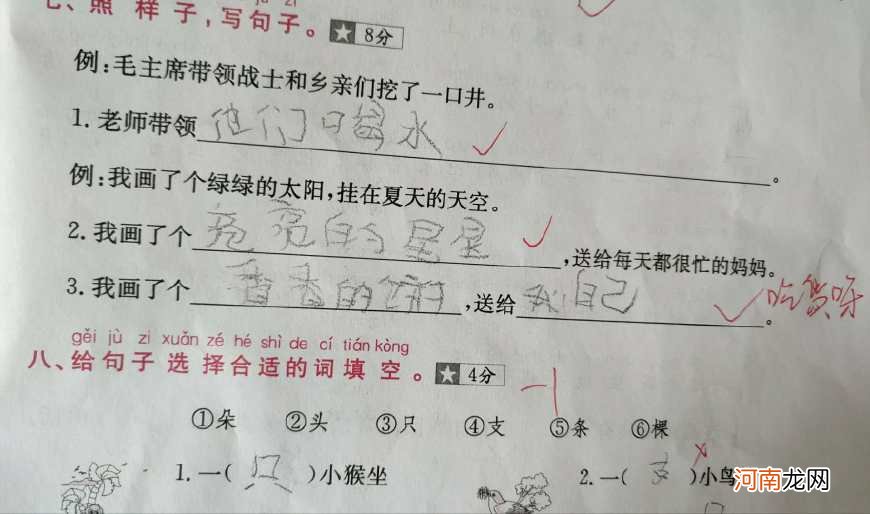 七、照样子,写句子。★ 8分
例:毛主席带领战士和乡亲们挖了一口井。
1.老师带领他们喝水。
例:我画了个绿绿的太阳,挂在夏天的天空。
2.我画了个亮亮的星星,送给每天都很忙的妈妈。
3.我画了个香香的,送给我自己。吃货呀
gěi jù zi xuǎn zé hé shì de cí tián kòng
八、给句子选择合适的词填空。★ 4分 -1
①朵 ②头 ③只 ④支 ⑤条 ⑥棵
1.一(只)小猴坐 2.一( )小鸟
河南龙网